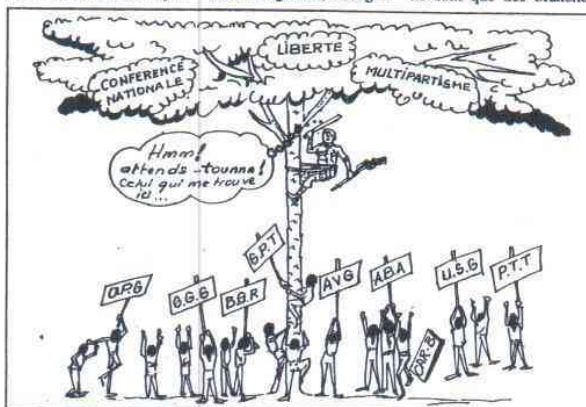 CONFERENCE
NATIONALE
LIBERTE
MULTIPARTISME
Hmm!
attends-tounna!
Celui qui me trouve
ici...
O.P.G
G.G.G
B.B.R
G.P.T
A.V.G
A.B.A
CAR.B
U.S.G
P.T.T